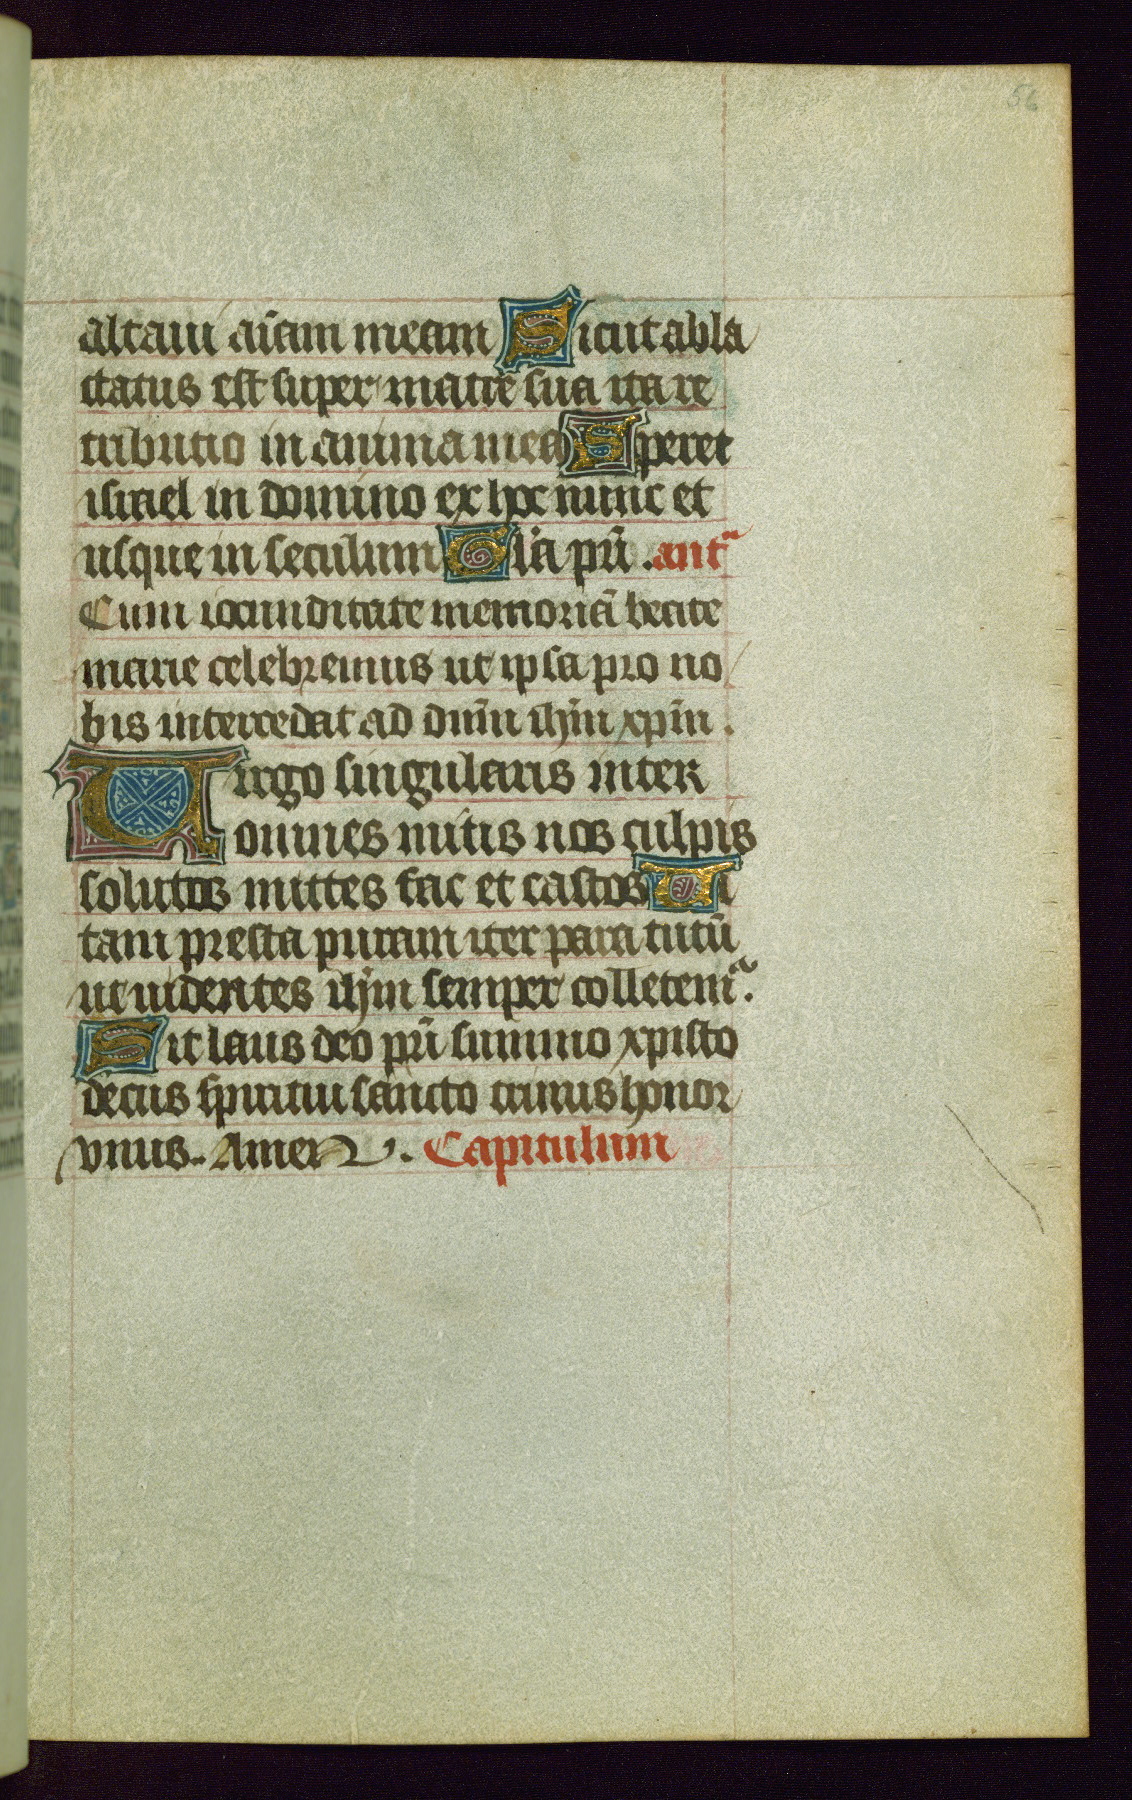 56
altaui aīam meam Sicut abla
ctatus est super matrē sua ita re
tributio in anima mea Speret
israel in domino ex hoc nunc et
usque in seculum Glīa pri̅ . ant̃
Cum iocunditate memoriā beate
marie celebremus ut ipsa pro no
bis intercedat ad dnm̄ ihm̄ xpm̄ .
Uirgo singularis inter
omnes mitis nos culpis
solutos mittes fac et castos Ui
tam presta puram iter para tutū
ut uidentes ihm̄ semper colletem̃ .
Sit laus deo pri̅ summo xpisto
decus spiritui sancto trinus honor
vnus. Amen . Capitulum